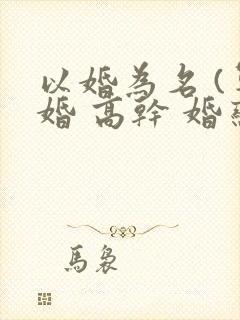 以婚為名(
婚 高幹 婚
馬裊